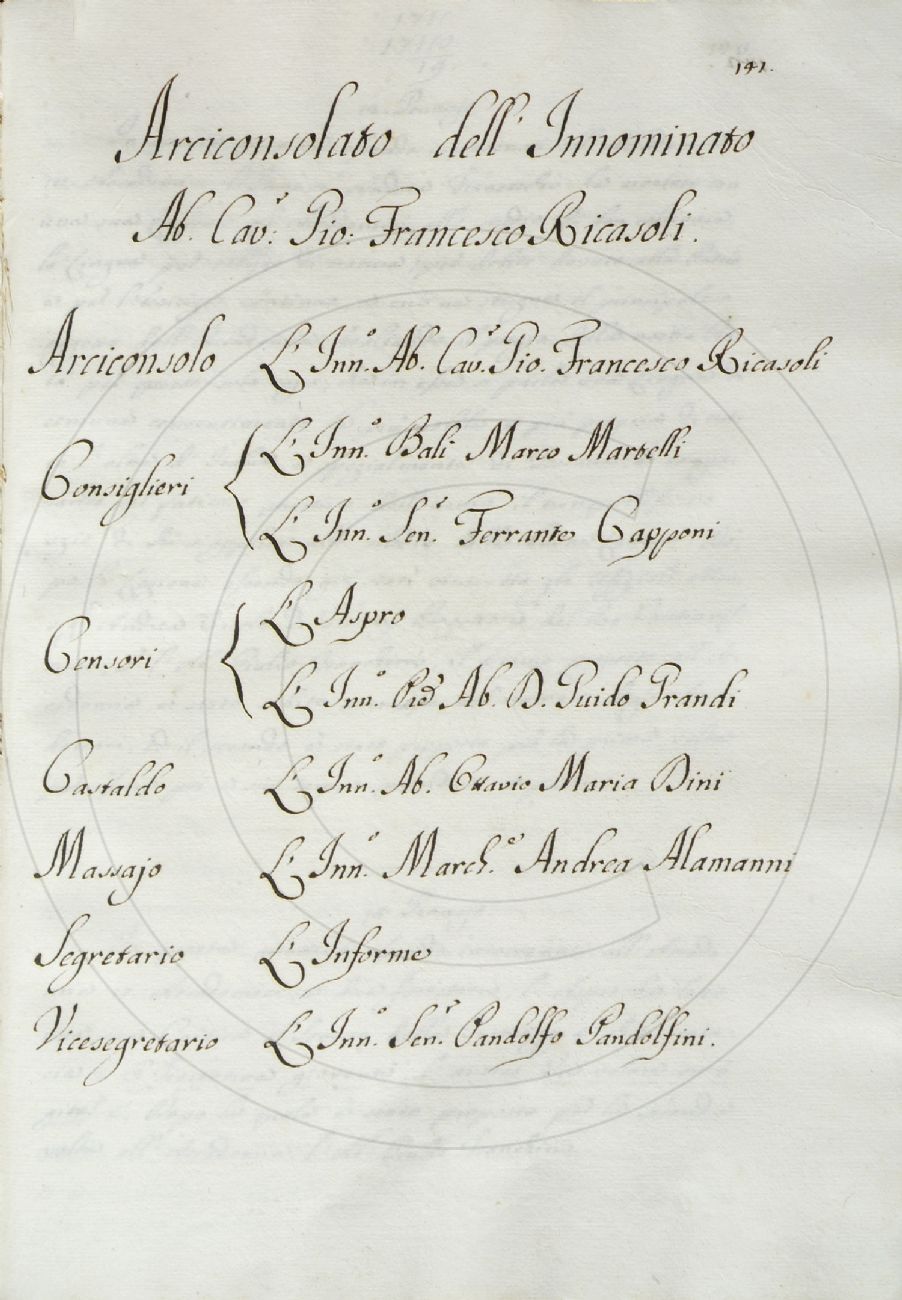 141.
Arciconsolato dell' Innominato
Ab. Cav.r Pio: Francesco Ricasoli.
Arciconsolo L' Inn.o Ab. Cav.r Pio. Francesco Ricasoli
Consiglieri { L' Inn.o Balì Marco Martelli
L' Inn.o Sen.r Ferrante Capponi
Censori { L' Aspro
L' Inn.o Ab. D. Guido Grandi
Castaldo L' Inn.o Ab. Ottavio Maria Dini
Massajo L' Inn.o March.e Andrea Alamanni
Segretario L' Informe
Vicesegretario L' Inn.o Sen.r Pandolfo Pandolfini.